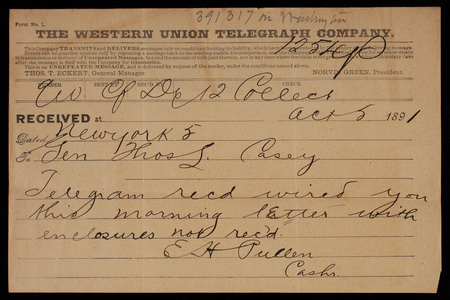 Form No. 1.
391 317 m Washington
THE WESTERN UNION TELEGRAPH COMPANY.
This Company TRANSMITS and DELIVERS messages only on conditions limiting its liability, which have
Errors can be guarded against only by repeating a message back to the sending station for comparison, and the
in transmission or delivery of Unrepeated Messages, beyond the amount of tolls paid thereon, nor in any case where the claim
after the message is filed with the Company for transmission.
This is an UNREPEATED MESSAGE, and is delivered by request of the sender, under the conditions named above.
THOS. T. ECKERT, General Manager
NORVIN GREEN, President.
1254P
NUMBER
SENT BY
REC'D BY
CHECK
12 Collect
RECEIVED at
Oct 5 1891
Dated New York 5
To Gen Thos L. Casey
Telegram recd wired you
this morning letter with
enclosures not recd.
E H Pullen
Cashr.